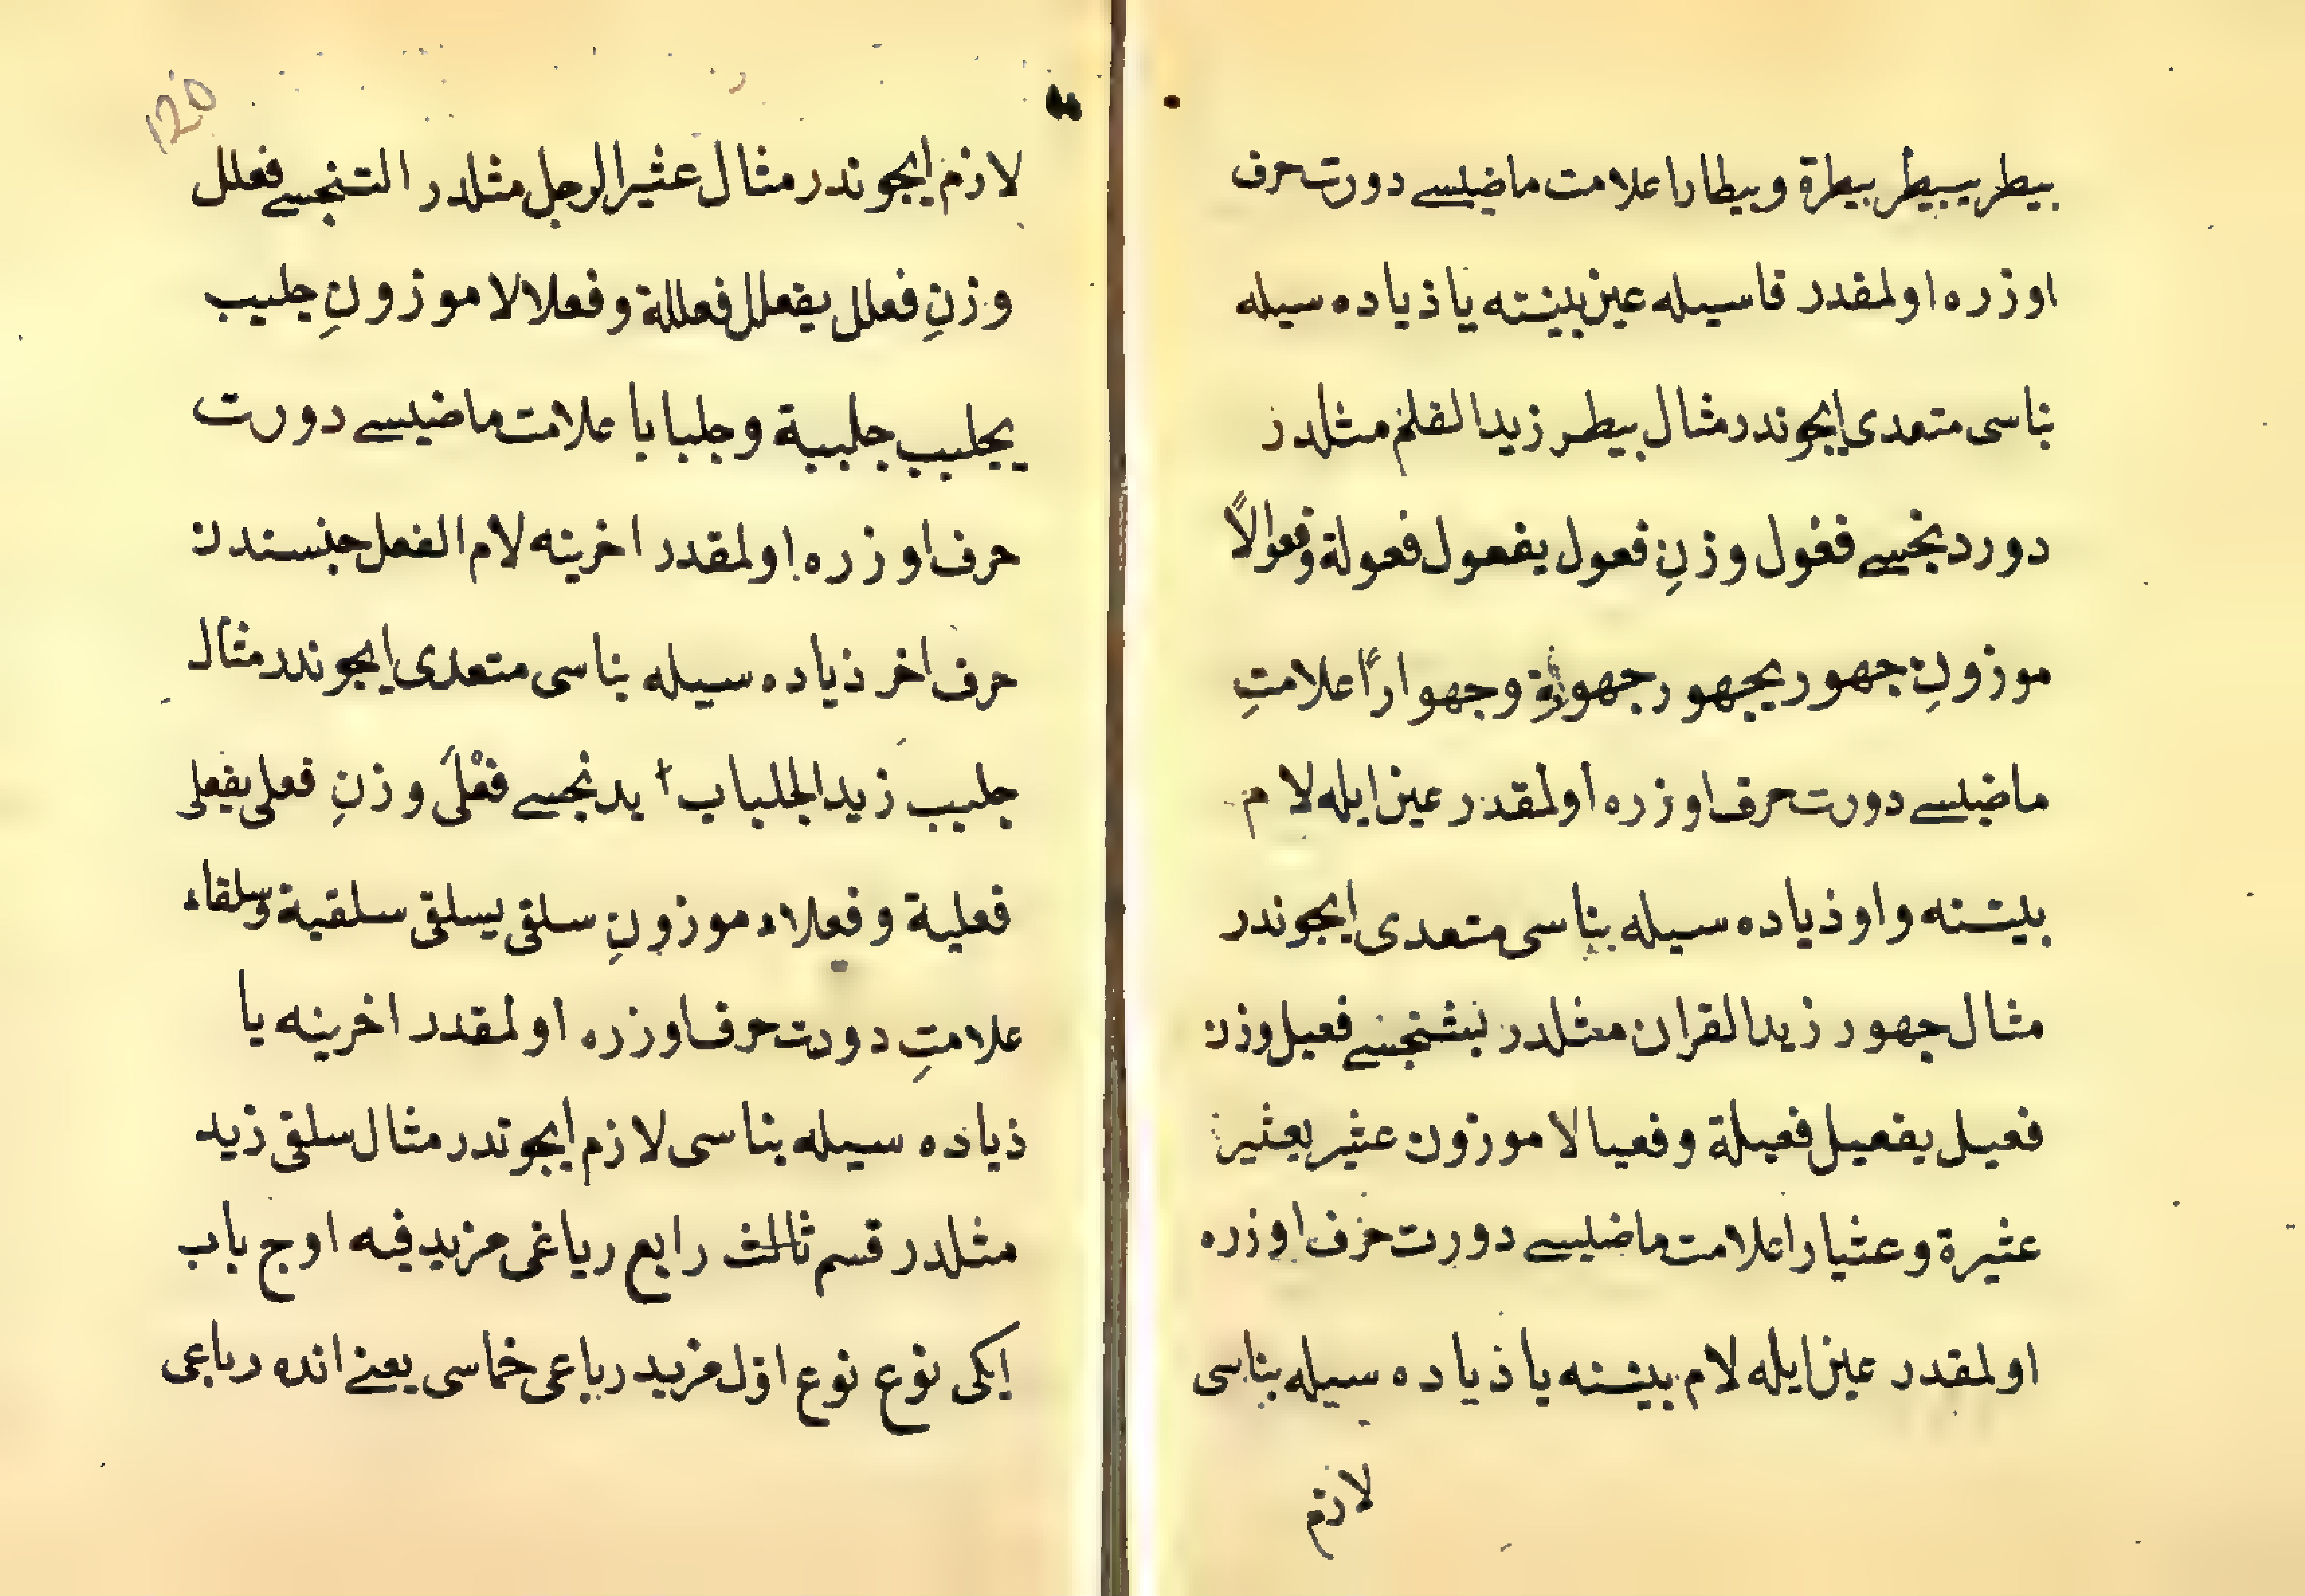 بيطر يبيطر بيطرة وبيطارا علامت ماضيسے دورت حرف
اوزره اولمقدر فاسيله عين بيننته يا ذياده سيله
بناسی متعدی ايچوندر مثال بيطر زيد القلم مثلدر
دوردنجسے فعول وزنِ فعول يفعول فعولة وفعوالاً
موزونِ جهور يجهور جهورة وجهواراً علامتِ
ماضيسے دورت حرف اوزره اولمقدر عين ايله لام
بيننه واو ذياده سيله بناسی متعدی ايچوندر
مثال جهور زيد القران مثلدر بشنجسے فعيل وزن
فعيل يفعيل فعيلة وفعيالا موزون عثير يعثير
عثيرة وعثيارا علامت ماضيسے دورت حرف اوزره
اولمقدر عين ايله لام بيننه يا ذياده سيله بناسی
لازم
120
لازم ايچوندر مثال عثير الرجل مثلدر التنجسے فعلل
وزنِ فعلل يفعلل فعللة وفعلالا موزونِ جلبب
يجلبب جلببة وجلبابا علامت ماضيسے دورت
حرف اوزره اولمقدر اخرينه لام الفعل جنسندن
حرف اخر ذياده سيله بناسی متعدی ايچوندر مثال
جلبب زيد الجلباب يدنجسے فعْلَى وزنِ فعلى يفعلى
فعلية وفعلاء موزونِ سلقى يسلقى سلقية وسلقاء
علامتِ دورت حرف اوزره اولمقدر اخرينه يا
ذياده سيله بناسی لازم ايچوندر مثال سلقى زيد
مثلدر قسم ثالث رابع رباغی مزيد فيه اوج باب
ايکی نوع نوع اوّل مزيد رباعی خماسی يعنے انده رباعی